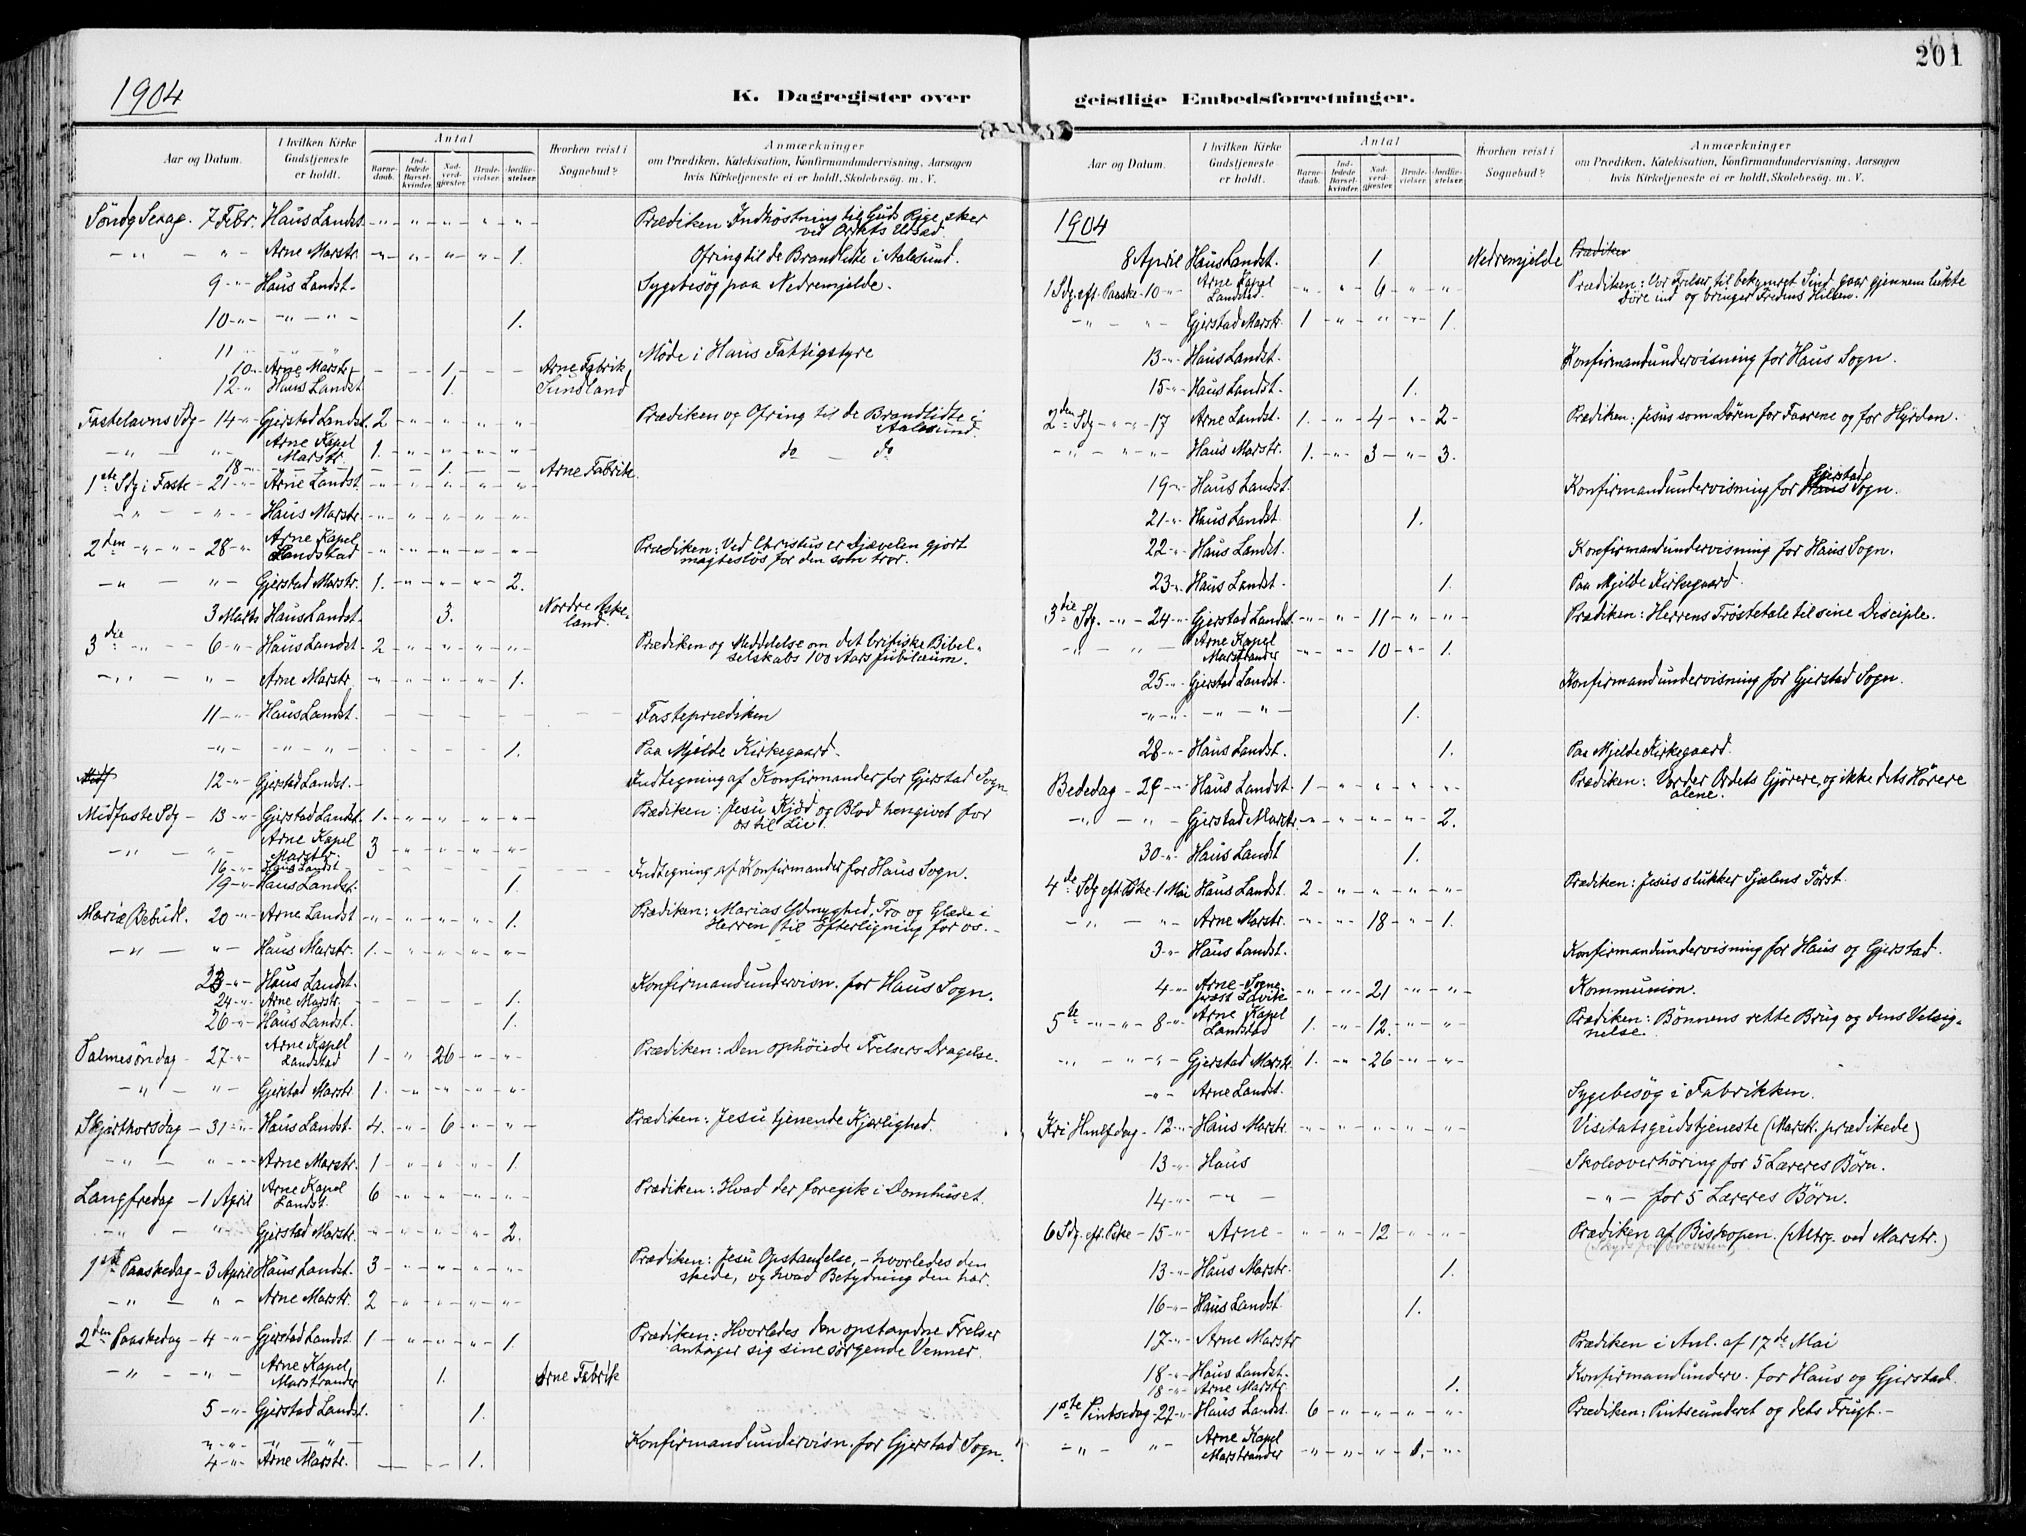 201
1904
K. Dagregister over
Aar og Datum.
I hvilken Kirke Gudstjeneste er holdt.
Antal
Barnedaab.
Indledede Barselkvinder.
Nadverdgjester.
Brudevielser.
Jordfæstelser.
Hvorhen reist i Sognebud?
Anmærkninger
om Prædiken, Katekisation, Konfirmandundervisning, Aarsagen
hvis Kirketjeneste ei er holdt, Skolebesøg. m. V.
Søndg Sexag. 7 Febr. Haus Landst - " - " - " - " - " Prædiken Indhøstning til Guds Rige sker
ved Ordets Udsæd.
- " - " - Arne Marstr. - " - " - " - " - 1. Ofring til de Brandlidte i Aalesund.
9 - " - Haus Landst - Sygebesøg paa Nedremjelde.
10 - " - " - " - 1.
11 " Møde i Haus Fattigstyre
10 " Arne Marstr. - - 1. - - Arne Fabrik
12 " Haus Landst 1. Sunsland
Fastelavns Sdg - 14 - " Gjerstad Landst. 2 - " - " - " - " Prædiken og Ofring til de Brandlidte i
Aalesund.
- " - " - Arne Kapel Marstr. 1. - " - " - " - " do - do
18 - " - - 1. - - Arne Fabrik
1ste Sdg i Faste - 21 - " - Arne Landst. - " - " - " - " - "
- " - " - Haus Marstr. - " - " - " - " - "
2den - " - " - 28 - " - Arne Kapel Landstad - " - " - " - " - " Prædiken: Ved Christus er Djævelen gjort
magtesløs for den som tror.
- " - " - Gjerstad Marstr. 1. - " - " - " - 2.
3 Marts Haus Landst. 3. Nordre Askeland.
3die - " - - 6 - " - Haus Landst - 2 - " - " - " - " Prædiken og Meddelelse om det britiske Bibel-
selskabs 100 Aars Jubilæum.
- " - " - Arne Marstr. - " - " - " - " - 1.
11 - " - Haus Landst. - - - - - - - Fasteprædiken
- " - " - " - 1. Paa Mjelde Kirkegaard -
Midf 12 - " - Gjerstad Landst. - Indtegning af Konfirmander for Gjerstad Sogn
Midfaste Sdg - 13 - " - Gjerstad Landst. 1 - " - " - " - " Prædiken: Jesu Kjød og Blod hengivet for
os til Liv.
- " - " - Arne Kapel Marstr. 3 - " - " - " - "
16 - " Haus Landst - - - - - - - Indtegning af Konfirmander for Haus Sogn.
19 - " - Haus Landst. 1.
Mariæ Bebudl. 20 - " - Arne Landst - " - " - " - " - 1. Prædiken: Marias Ydmyghed, Tro og Glæde i
Herren til Efterligning for os. -
- " - " - Haus Marstr. 1. - " - " - " - "
23 - " - Haus Landst. Konfirmandundervisn. for Haus Sogn.
24 - " Arne Marstr. - - - - 1.
26 - " - Haus Landst. 1.
Palmesøndag - 27 - " - Arne Kapel Landstad 1 - " - 26 - " - " Prædiken: Den ophøiede Frelsers Dragelse.
- " - " - Gjerstad Marstr. 1. - " - " - " - "
Skjærthorsdag - 31 - " Haus Landst. 4. - " - 6 - " - " Prædiken: Jesu tjenende Kjærlighed.
- " - " - " - Arne Marstr. 1 - " - " - " - 1.
Langfredag - 1 April Arne Kapel Landst. 6 - " - " - " - " Prædiken: Hvad der foregik i Domhuset.
- " - " Gjerstad Marstr. - " - " - " - " - 2.
1ste Paaskedag - 3 April Haus Landst. 3 - " - " - " - " Prædiken: Jesu Opstandelse, - hvorledes den
skede, og hvad Betydning den har.
- " - " - Arne Marstr. 2 - " - " - " - "
2den Paaskedag - 4 - " Gjerstad Landst. 1 - " - " - " - 1. Prædiken: Hvorledes den opstandne Frelser
antager sig sine sørgende Venner.
- " - " - Arne Kapel, Marstrander 1. Arne Fabrik
5 - " - Gjerstad Landst. 1.
" - " - - " - Konfirmandundervisn. for Gjerstad Sogn.
4 - " - Arne Marstr. - 1.
geistlige Embedsforretninger.
Aar og Datum.
I hvilken Kirke Gudstjeneste er holdt.
Antal
Barnedaab.
Indledede Barselkvinder.
Nadverdgjester.
Brudevielser.
Jordfæstelser.
Hvorhen reist i Sognebud?
Anmærkninger
om Prædiken, Katekisation, Konfirmandundervisning, Aarsagen
hvis Kirketjeneste ei er holdt, Skolebesøg. m. V.
1904
8 April Haus Landst. 1 Nedremjelde Prædiken
1 Sdg. eft. Paaske - 10 - " Arne Kapel Landstad. - " - " - 6 - " - " Prædiken: Vor Frelser til bekymret Sind gaar gjennem lukte
Døre ind og bringer Fredens Hilsen.
- " - " - Gjerstad Marstr. 1 - " - " - " - 1.
13 - " - Haus Landst. Konfirmandundervisning for Haus Sogn.
15 - " - Haus Landst. 1.
2den Sdg - " - " - 17 Arne Landst. 1. - " - 4 - " - 2 - Prædiken: Jesus som Døren for Faarene og for Hyrden.
- " - " - " - Haus Marstr. 1. - " - 3 - " - 3.
19 - " - Haus Landst. Konfirmandundervisning for Haus Gjerstad Sogn.
21 - " - Haus Landst. 1.
22 - " Haus Landst. Konfirmandundervisning for Haus Sogn.
23 - " - Haus Landst. 1. Paa Mjelde Kirkegaard.
3die Sdg. - " - 24 - " Gjerstad Landst. - " - " - 11 - " - " - Prædiken: Herrens Trøstetale til sine Disciple.
- " - " - Arne Kapel Marstrander - " - " - 10 - " - 1.
25 - " - Gjerstad Landst. Konfirmandundervisning for Gjerstad Sogn.
- " - " - - " - " 1.
28 - " - Haus Landst. 1. Paa Mjelde Kirkegaard.
Bededag - 29 - " Haus Landst. 1 - " - " - " - " Prædiken: Vorder Ordets Gjørere, og ikke dets Hørere
alene.
- " - " - Gjerstad Marstr. - " - " - " - " - 2.
30 - " Haus Landst 1.
4de Sdg eft Pske - 1 Mai Haus Landst. 2 - " - " - " - " Prædiken: Jesus slukker Sjælens Tørst.
- " - " - Arne Marstr. - " - " - 18 - " - 1.
3 - " - Haus Landst. Konfirmandundervisning for Haus og Gjerstad.
4 - " Arne - Sognepræst Løvik - " - " - 21 - " - " - Kommunion.
5te - " - " - 8 - " Arne Kapel Landstad 1. - " - 12 - " - " Prædiken: Bønnens rette Brug og dens Velsig-
nelse.
- " - " - Gjerstad Marstr. 1. - " - 26 - " - "
- " - Arne Landst. Sygebesøg i Fabrikken.
Kri Hmlfdag - 12 - " Haus Marstr. - " - " - " - " - " Visitatsgudstjeneste (Marstr. prædikede)
13 - " - Haus Skoleoverhøring for 5 Læreres Børn.
14 - " - - " - - " - for 5 Læreres Børn.
6 Sdg. eft. Pske - 15 - " - Arne - - " - " - 12 - " - " Prædiken af Biskopen. (Altrg. ved Marstr.)
13 - " - Haus Marstr. 1.
16 - " - Haus Landst. 1.
17 - " - Arne Marstr Prædiken i Anl. af 17de Mai
18 - " - Haus Landst. - Konfirmandunderv. for Haus og Gjerstad.
18 - " - Arne Marstr. 1.
1ste Pintsedag - 22 - " Haus Landst. 6 - " - " - " - " Prædiken: Pintseunderet og dets Frugt. -
- " - " - Arne Kapel Marstrander - " - " - " - 1. - "